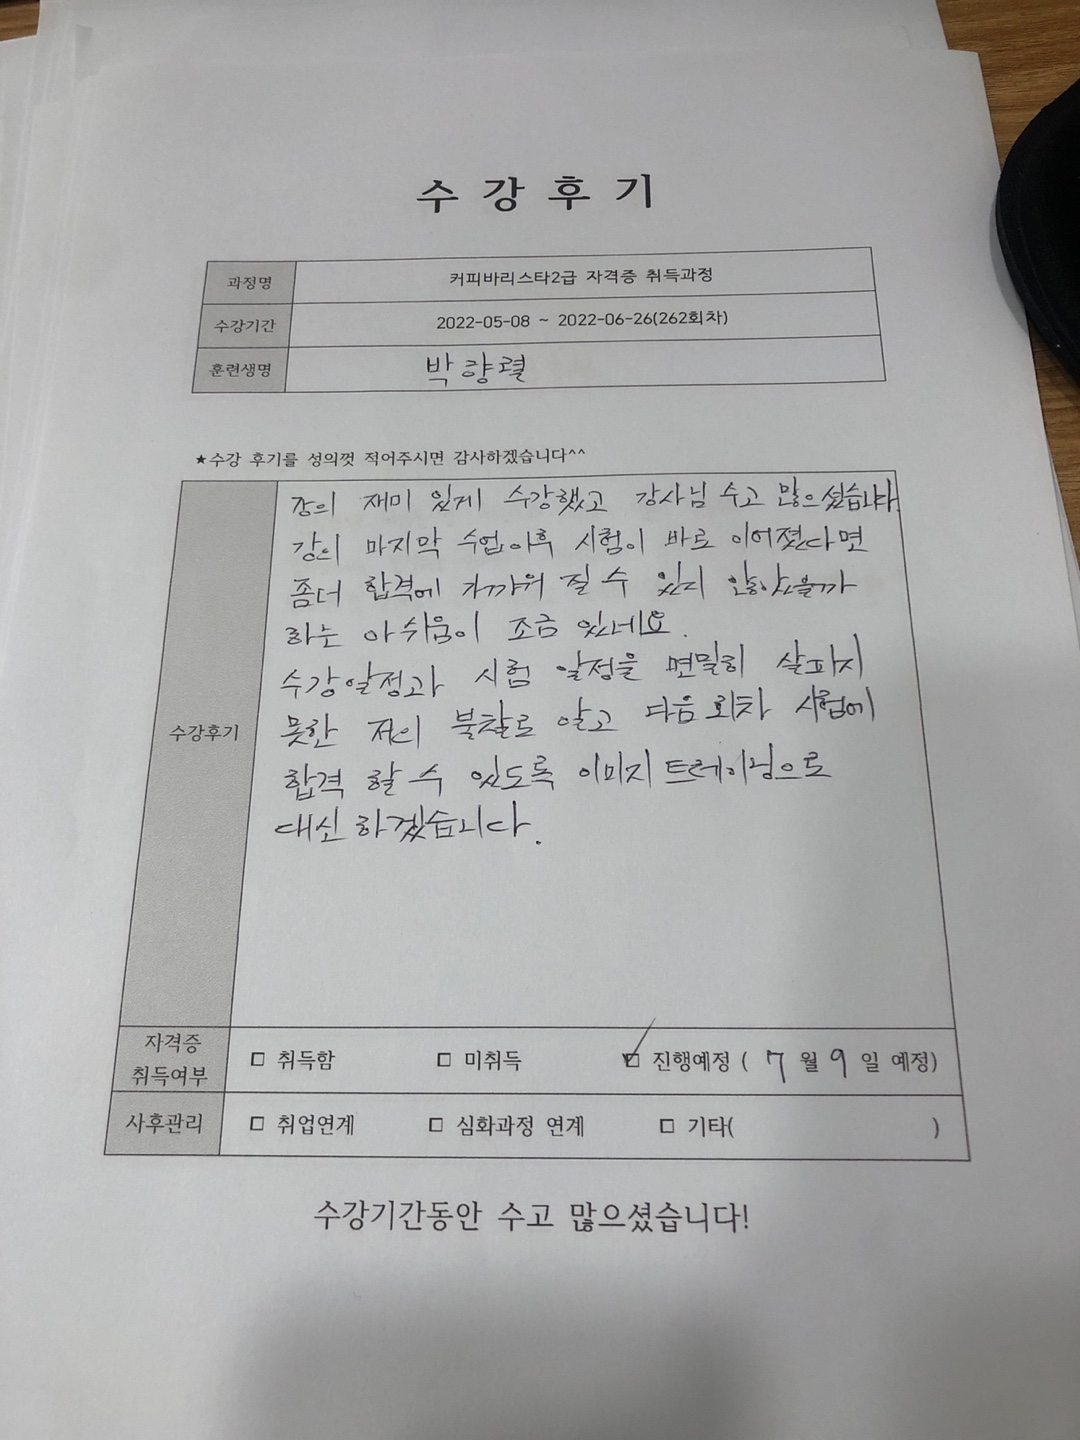 수 강 후 기
과정명 커피바리스타2급 자격증 취득과정
수강기간 2022-05-08 ~ 2022-06-26(262회차)
훈련생명 박량렬
★수강 후기를 성의껏 적어주시면 감사하겠습니다^^
수강후기
강의 재미 있게 수강했고 강사님 수고 많으셨습니다.
강의 마지막 수업이후 시험이 바로 이어졌다면
좀더 합격에 가까워 질 수 있지 않았을까
하는 아쉬움이 조금 있네요.
수강일정과 시험 일정을 면밀히 살피지
못한 저의 불찰로 알고 다음 회차 시험에
합격 할 수 있도록 이미지 트레이닝으로
대신 하겠습니다.
자격증 취득여부 □ 취득함 □ 미취득 ☑ 진행예정 ( 7 월 9 일 예정)
사후관리 □ 취업연계 □ 심화과정 연계 □ 기타( )
수강기간동안 수고 많으셨습니다!